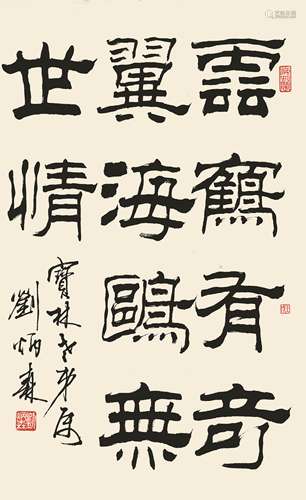 雲鶴有奇
翼海鷗無
世情
寶林老弟属
劉炳森